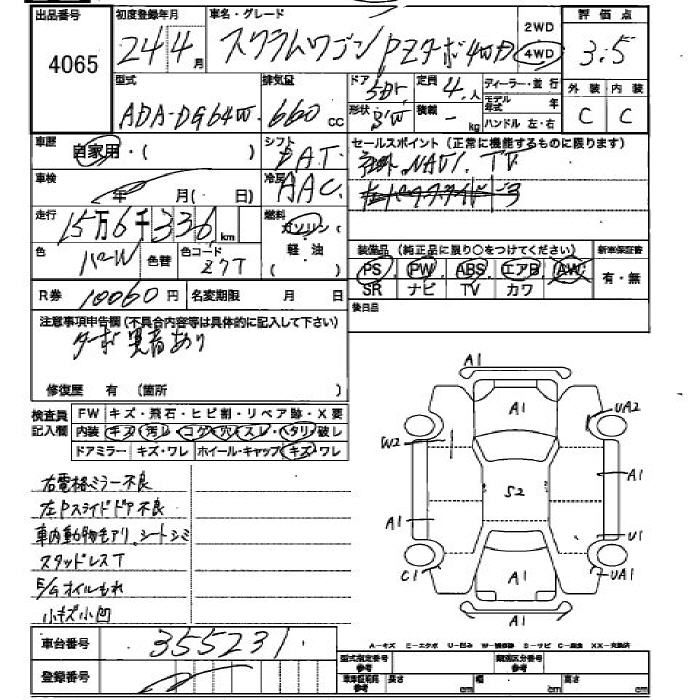 出品番号 4065
初度登録年月 24年4月
車名・グレード スクラムワゴン PZターボ4WD
2WD 4WD
評価点 3.5
型式 ADA-DG64W
排気量 660 cc
ドア 形状 5Dr 3W
定員 4人
積載 - kg
ディーラー・並行
モデル年式 年
ハンドル 左・右
外装 C
内装 C
車歴 自家用・( )
シフト FAT
セールスポイント(正常に機能するものに限ります)
社外NAVI. TV
車検 年 月( 日)
冷房 AAC
走行 15万6千336 km
燃料 ガソリン 軽油 ( )
色 パールW
色替
色コード Z7T
装備品(純正品に限り○をつけてください)
新車保証書 有・無
PS PW ABS エアB AW
SR ナビ TV カワ
R券 10060円
名変期限 月 日
後日品
注意事項申告欄(不具合内容等は具体的に記入して下さい)
ターボ異音あり
修復歴 有 (箇所 )
検査員記入欄
FW キズ・飛石・ヒビ割・リペア跡・X要
内装 キズ・汚レ・コゲ・穴・スレ・ヘタリ・破レ
ドアミラー キズ・ワレ ホイール・キャップ キズ・ワレ
右電格ミラー不良
左Pスライドドア不良
車内動物毛アリ、シートシミ
スタッドレスT
E/Gオイルもれ
小キズ小凹
A1
A1
UA2
W2
A1
S2
A1
U1
C1
A1
UA1
A1
車台番号 355231
登録番号
A-キズ E-エクボ U-凹み W-補修跡 S-サビ C-腐食 XX-交換済
型式指定番号
類別区分番号
車庫証明用参考
長さ cm 幅 cm 高さ cm